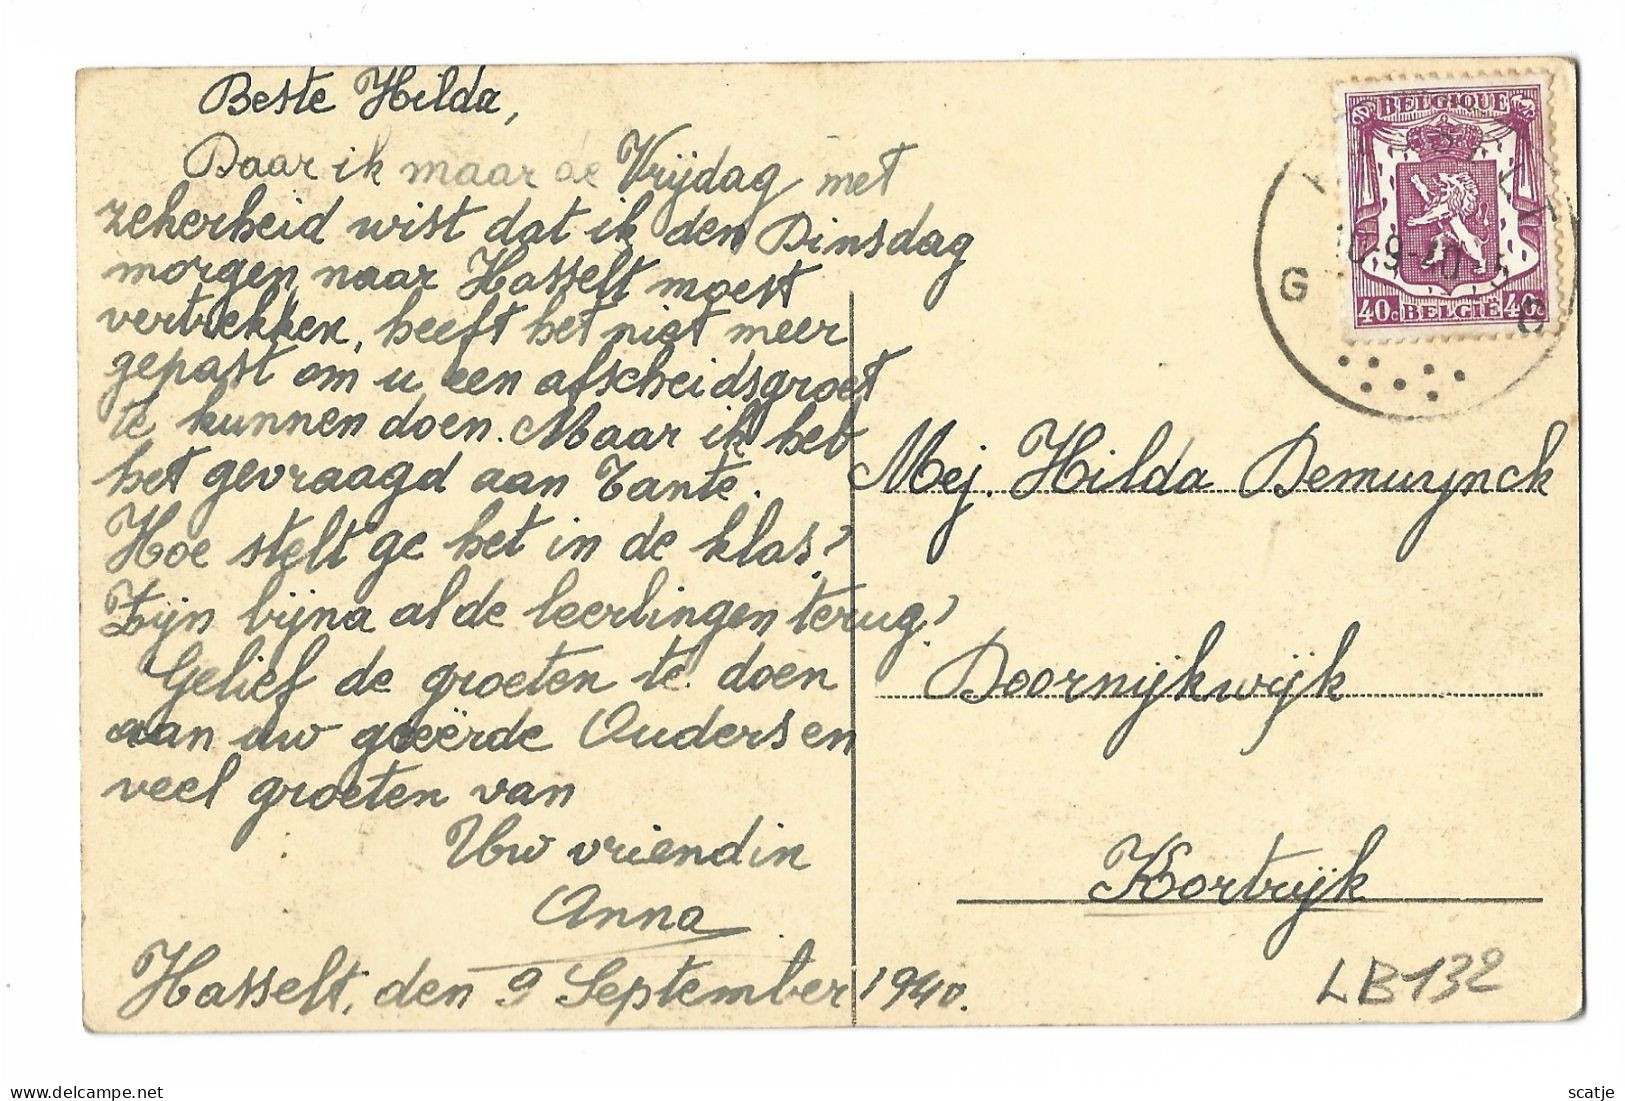 Beste Hilda,
Daar ik maar de Vrijdag met
zekerheid wist dat ik den Dinsdag
morgen naar Hasselt moest
vertrekken, heeft het niet meer
gepast om u een afscheidsgroet
te kunnen doen. Maar ik heb
het gevraagd aan Tante.
Hoe stelt ge het in de klas?
Zijn bijna al de leerlingen terug?
Gelief de groeten te doen
aan uw geëerde Ouders en
veel groeten van
Uw vriendin
Anna
Hasselt, den 9 September 1940.
BELGIQUE
40c BELGIË 40c
G
9-40
Mej. Hilda Demuynck
Doornijkwijk
Kortrijk
LB132
scatje